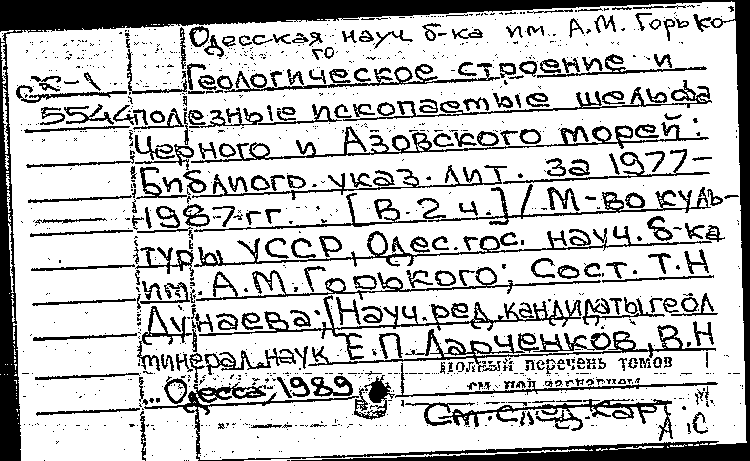 Одесская науч б-ка им. А.М. Горько-
го
СК-1
Геологическое строение и
5544
полезные ископаемые шельфа
Черного и Азовского морей:
Библиогр. указ. лит. за 1977-
1987 гг. : [В 2 ч.] / М-во куль-
туры УССР, Одес. гос. науч. б-ка
им. А.М. Горького; Сост. Т.Н
Дунаева; [Науч. ред. кандидаты геол
минерал. наук Е.П. Ларченков, В.Н
Полный перечень томов
... Одесса, 1989
см. под заглавием
См. след. карт.